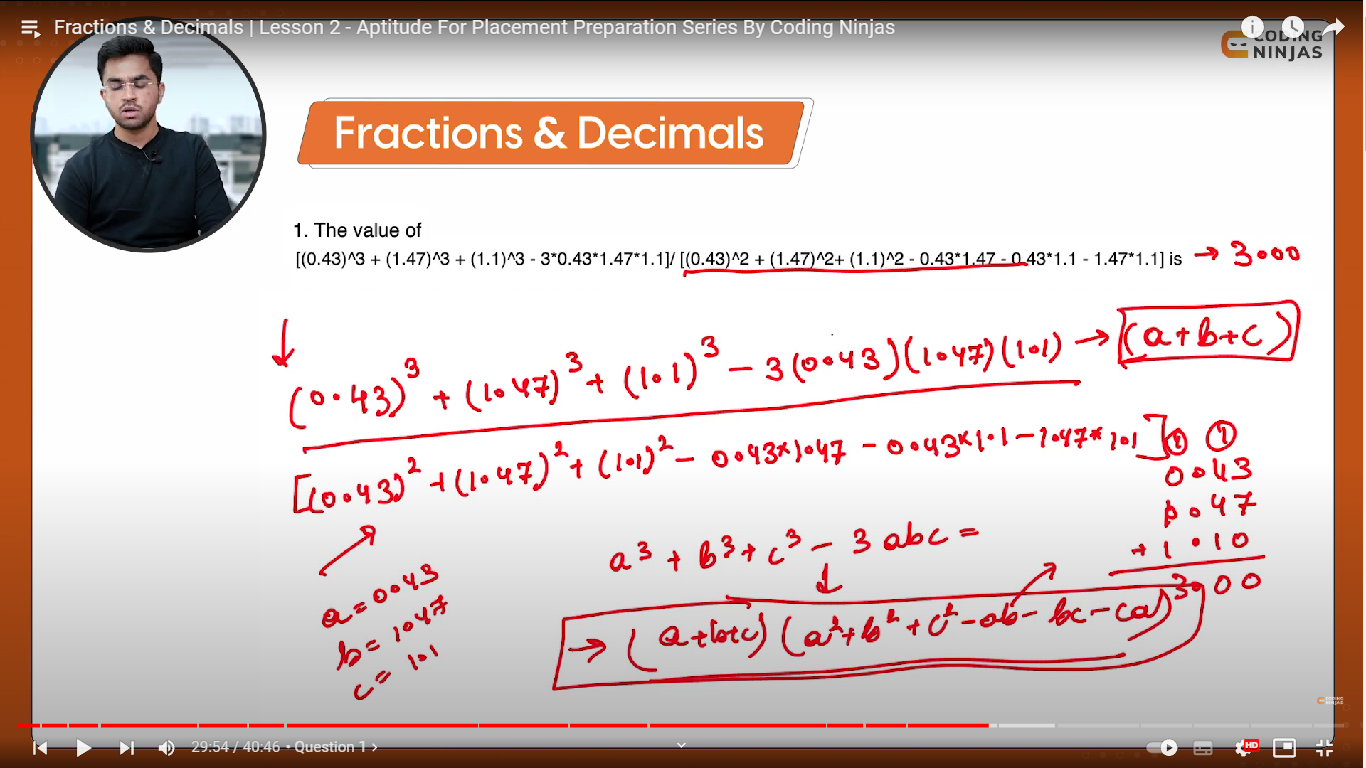 Fractions & Decimals | Lesson 2 - Aptitude For Placement Preparation Series By Coding Ninjas
CODING
NINJAS
Fractions & Decimals
1. The value of
[(0.43)^3 + (1.47)^3 + (1.1)^3 - 3*0.43*1.47*1.1]/ [(0.43)^2 + (1.47)^2+ (1.1)^2 - 0.43*1.47 - 0.43*1.1 - 1.47*1.1] is → 3.00
↓
(0.43)³ + (1.47)³ + (1.1)³ - 3(0.43)(1.47)(1.1) → (a+b+c)
[(0.43)² + (1.47)² + (1.1)² - 0.43*1.47 - 0.43*1.1 - 1.47*1.1]
① ①
0.43
1.47
+ 1.10
3.00
a = 0.43
b = 1.47
c = 1.1
a³ + b³ + c³ - 3abc =
↓
→ (a+b+c) (a²+b²+c²-ab-bc-ca)
CODING
NINJAS
29:54 / 40:46 • Question 1 >
HD